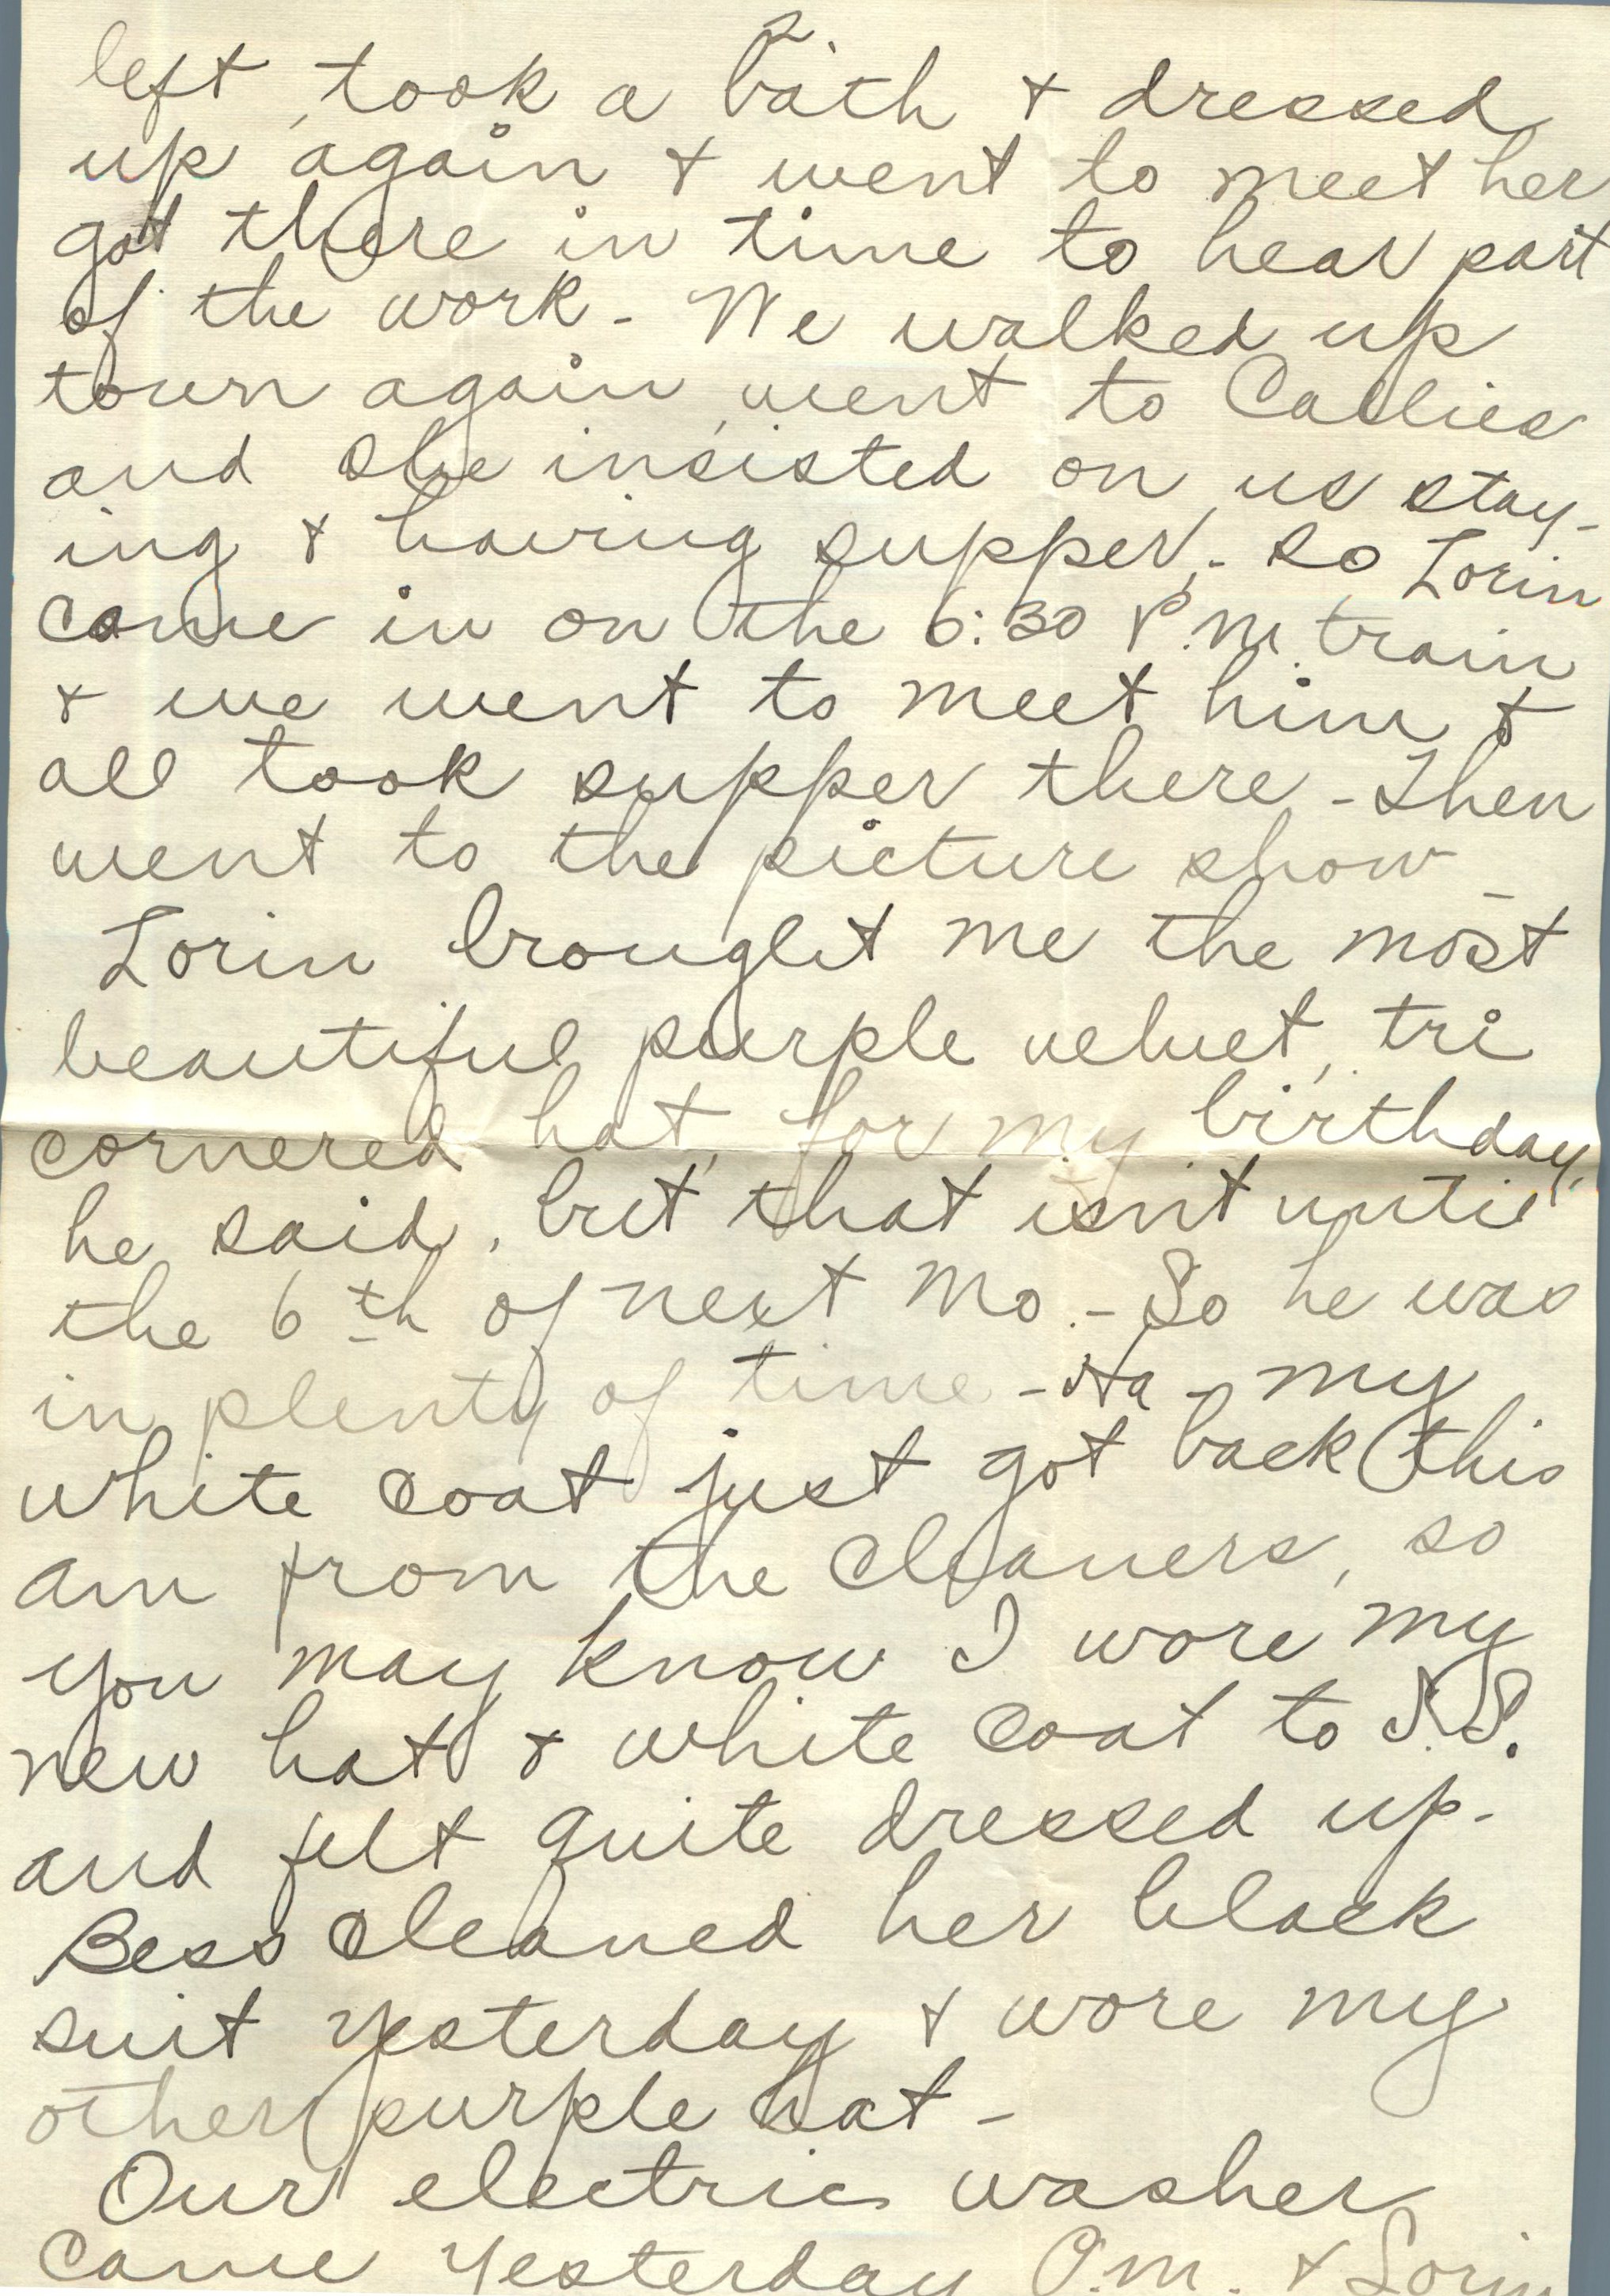 2.
left, took a bath + dressed
up again + went to meet her
got there in time to hear part
of the work - We walked up
town again, went to Callies
and she insisted on us stay-
ing + having supper, - so Lorin
came in on the 6:30 P.M. train
+ we went to meet him +
all took supper there - Then
went to the picture show -
Lorin brought me the most
beautiful purple velvet, tri
cornered hat, for my birthday,
he said, but that isn't until
the 6th of next Mo. - So he was
in plenty of time - Ha - my
white coat just got back this
am from the cleaners, so
you may know I wore my
new hat + white coat to S.S.
and felt quite dressed up -
Bess cleaned her black
suit yesterday + wore my
other purple hat -
Our electric washer
came yesterday P.M. + Lorin